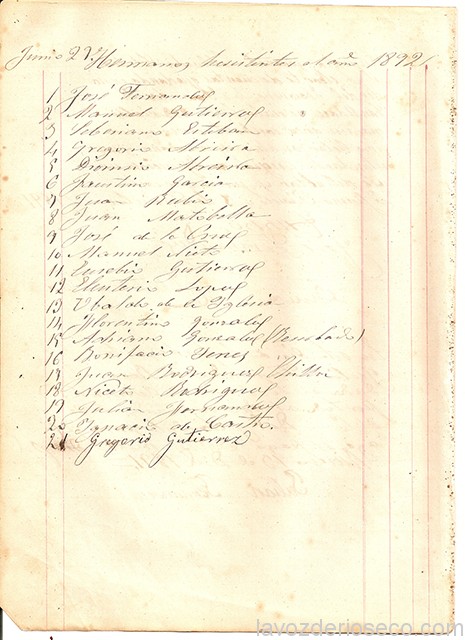 Junio 2 Hermanos Asistentes al año 1892
1 José Fernandez
2 Manuel Gutierrez
3 Seberiano Esteban
4 Gregorio
5 Dionisio
6 Faustino Garcia
7 Juan Rubio
8 Juan Matobella
9 José de la Cruz
10 Manuel Nieto
11 Eusebio Gutierrez
12 Eleuterio Lopez
13 Ubaldo de la Yglesia
14 Florentino Gonzalez
15 Adriano Gonzalez
16 Bonifacio
17 Juan Rodriguez
18 Niceto Rodriguez
19 Julian Hernandez
20 Ygnacio de Castro.
21 Gregorio Gutierrez
lavozderioseco.com